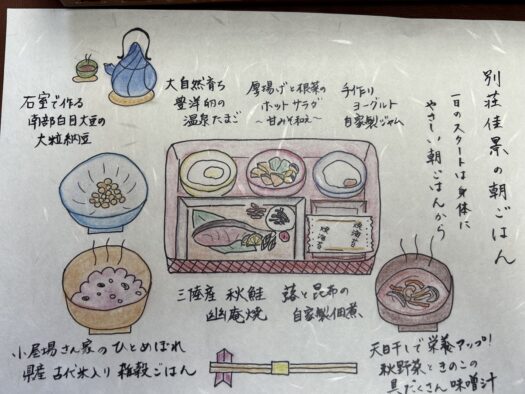 別荘佳景の朝ごはん
一日のスタートは身体に
やさしい朝ごはんから
手作り
ヨーグルト
自家製ジャム
厚揚げと根菜の
ホットサラダ
～甘みそ和え～
大自然育ち
豊洋卵の
温泉たまご
石室で作る
南部白目大豆の
大粒納豆
焼海苔
焼海苔
三陸産 秋鮭
幽庵焼
蕗と昆布の
自家製佃煮
小屋場さん家のひとめぼれ
県産 古代米入り 雑穀ごはん
天日干しで栄養アップ!
秋野菜ときのこの
具だくさん味噌汁